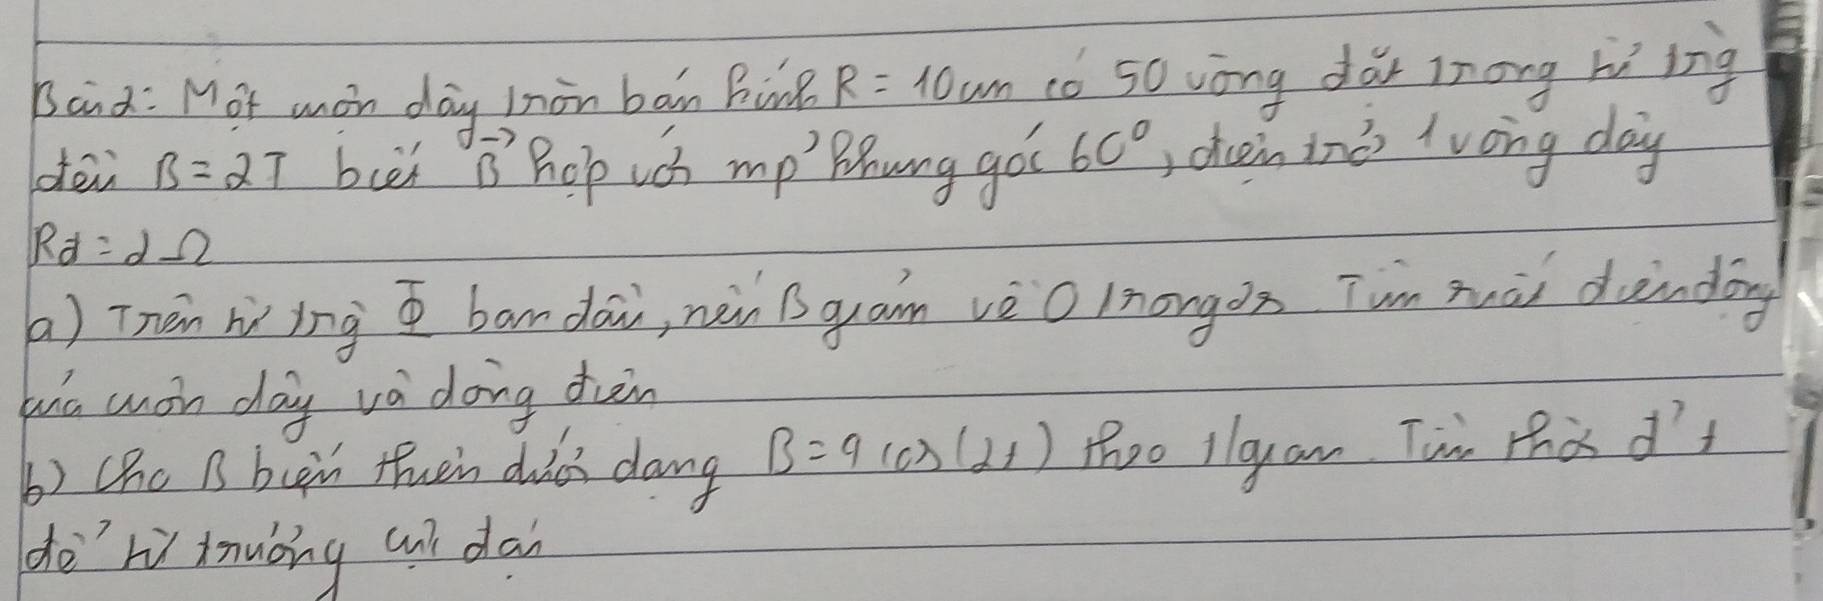 Bài 2: Một cuộn dây tròn bán kính R = 10cm có 50 vòng đặt trong từ trg
đều B = 2T biết B⃗ hợp với mp khung góc 60°, điện trở 1 vòng dây
Rd = 2Ω
a) Tìm từ trg Φ ban đầu, nếu B giảm về 0 trong 2s. Tìm suất điện động
của cuộn dây và dòng điện
b) Cho B biến thiên dưới dạng B = 9 cos(2t) theo t/gian. Tìm thời đ' t
để từ trường cực đại